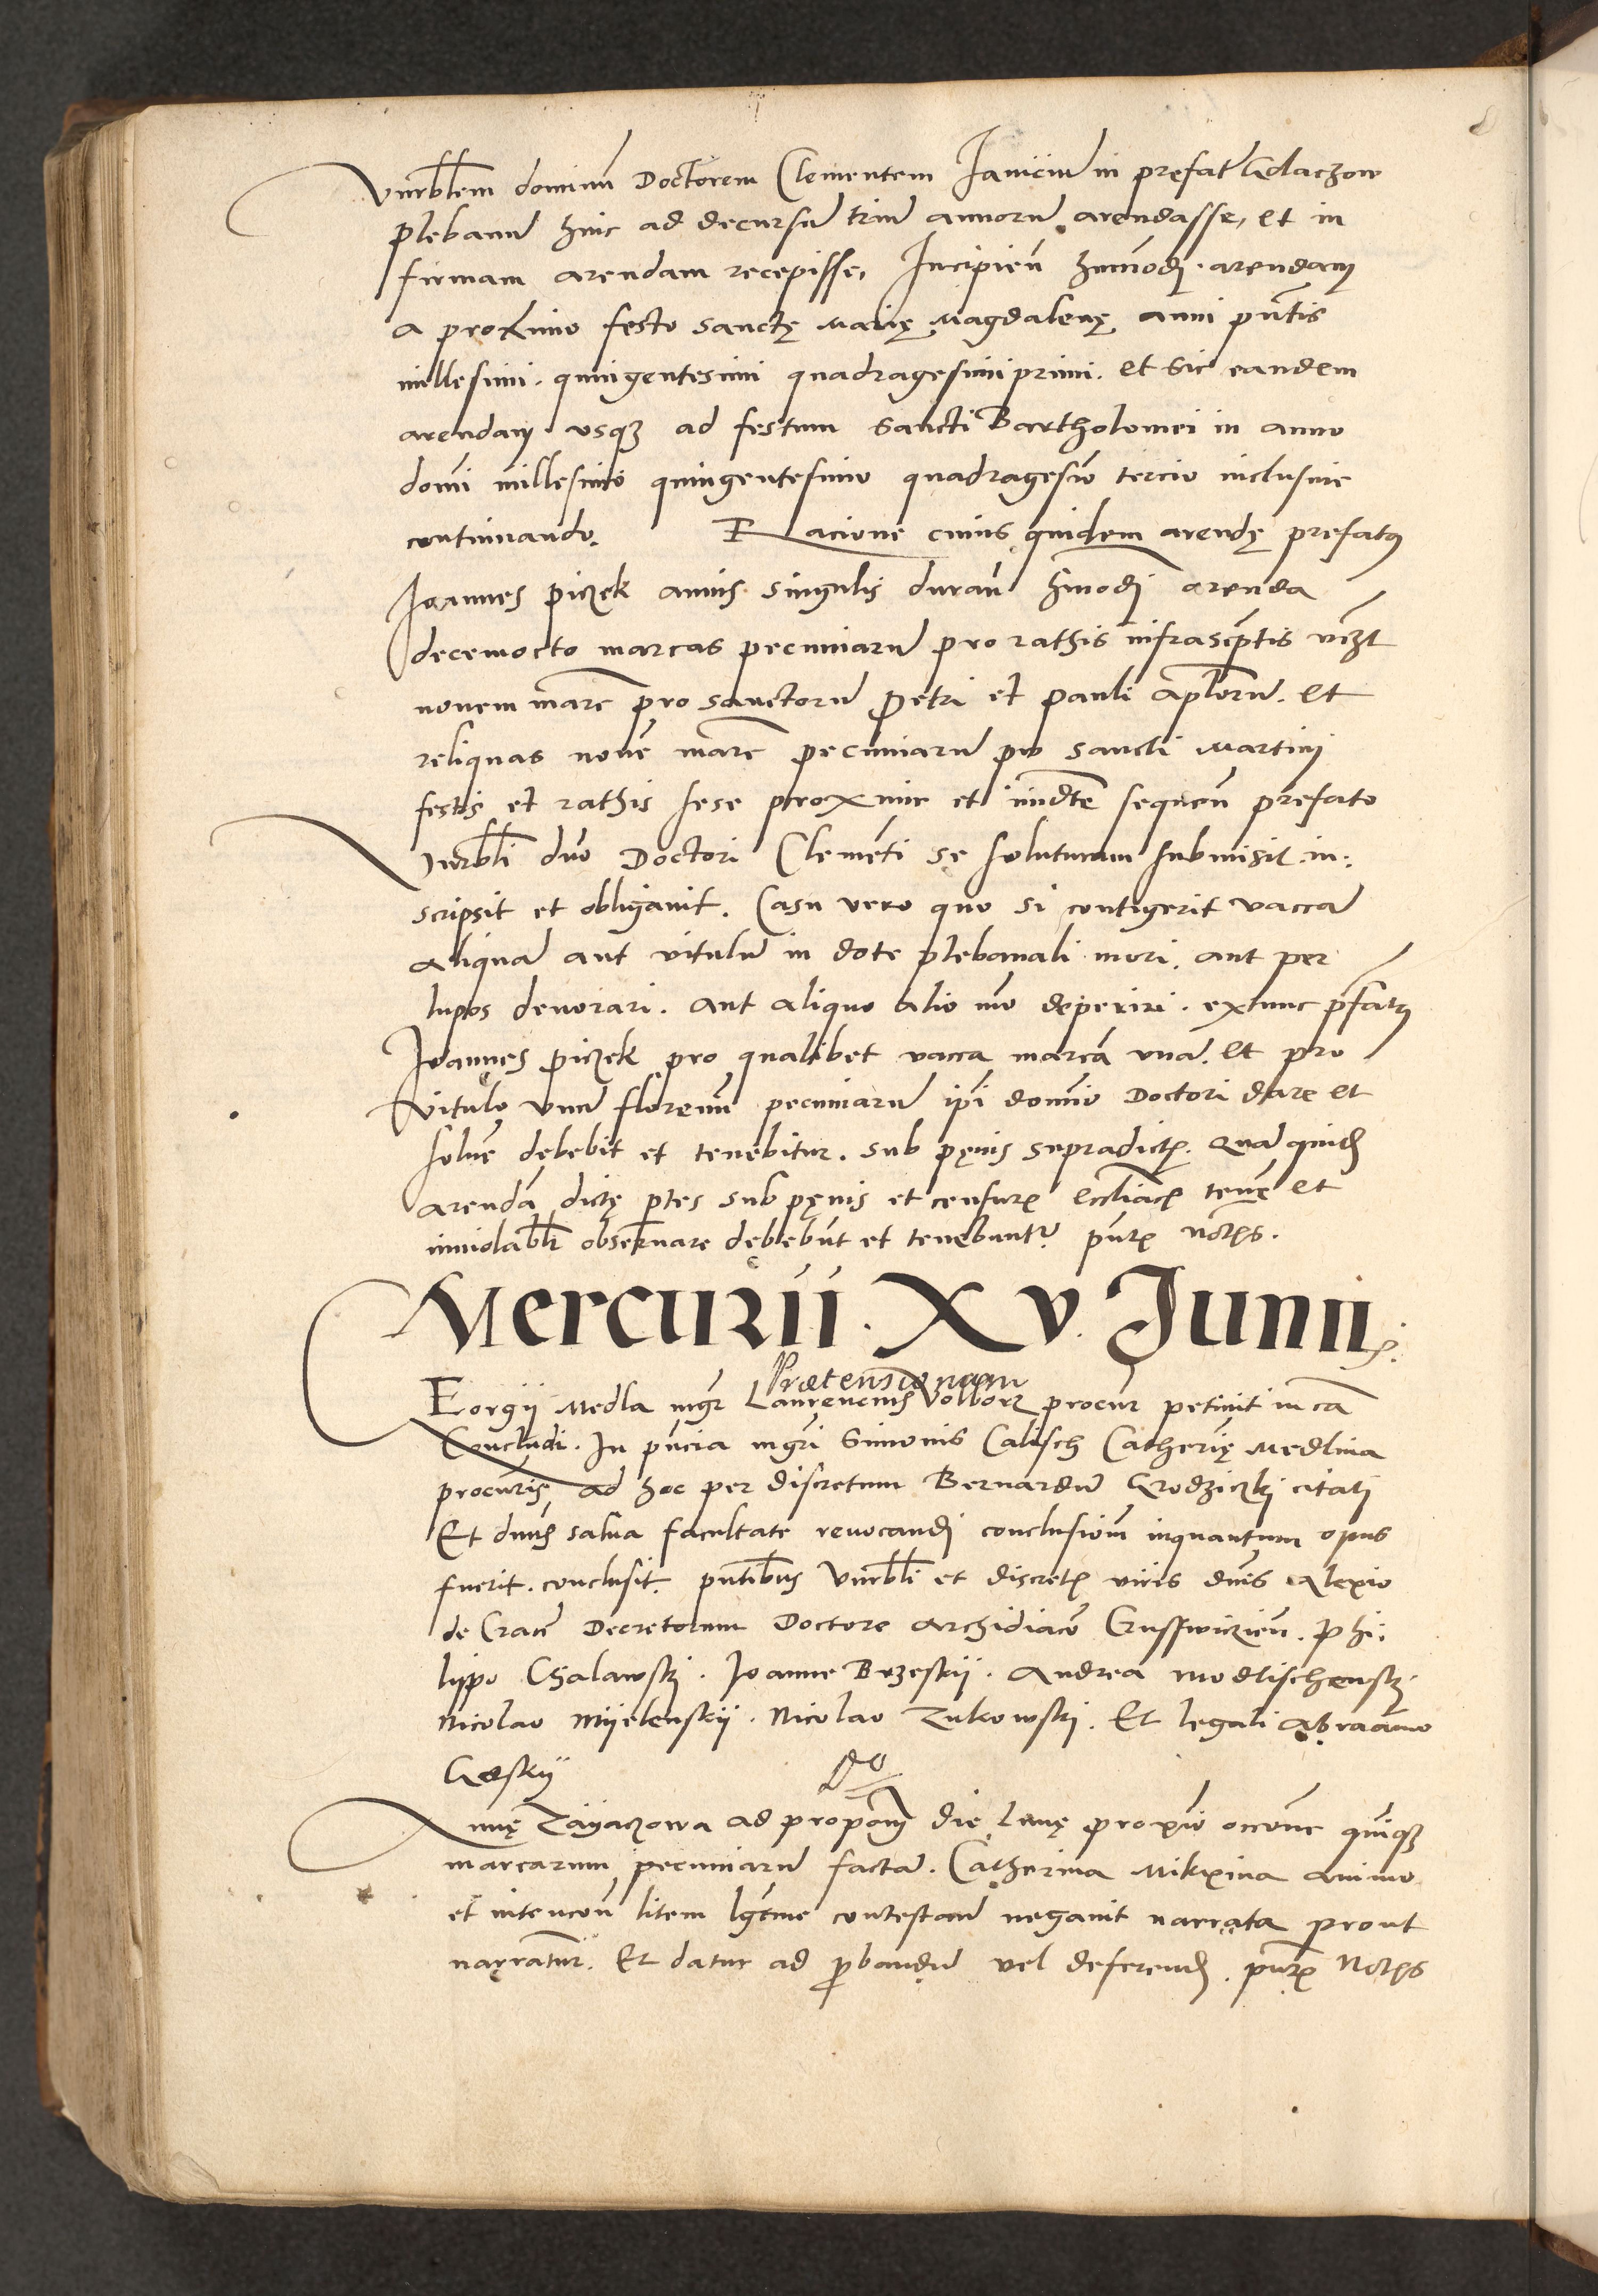 Vnrblem dominu Doctorem Clementem Janiciu in prefat Goladzow
plebanu huic ad decursu triu annoru arendasse, et in
firmam arendam recepisse, Incipien hmoi arendam
a proximo festo sanctę Marię Magdalenę anni pntis
millesimi quingentesimi quadragesimi primi. et sic eandem
arendam vsqz ad festum sancti Bartholomei in anno
domi millesimo quingentesimo quadragesio tercio inclusiue
continuando. Racione cuius quidem arendę prefatus
Joannes piczek annis singulis duran hmoi arenda
decemocto marcas pecuniaru pro rathis infrascptis vczt
nouem marc pro sanctoru Petri et Pauli aploru. et
reliquas noue marc pecuniaru pro sancti Martini
festis et rathis sese proxime et imdte sequen prefato
vnrbli dno Doctori Clementi se soluturum submisit in:
scripsit et obligauit. Casu vero quo si contigerit vacca
aliqua aut vitulu in dote plebanali mori. aut per
lupos deuorari. aut aliquo alio mo deperiri. extunc pfatus
Joannes piczek pro qualibet vacca marca vna. et pro
vitulo vnu florenu pecuniaru ipi domio Doctori dare et
solue debebit et tenebitur. sub pęnis supradict. qua quid
arenda dictę ptes sub pęnis et censur eccliac tenę et
inuiolabli obseruare deblebut et tenebuntur pnt notis.
Mercurii. Xv. Junii.
Prætensionum
Eorgii Medla mgr Laurencius Volborz procur petiuit in ca
Concludi. In pncia mgri Simonis Calisch Catherię Medlina
procuris ad hoc per discretum Bernardu Grodziczki citati
Et dnus salua facultate reuocandi conclusiom inquantum opus
fuerit. conclusit. pntibus Vnrbli et discret viris dnis Alexio
de Crac Decretorum Doctore Archidiaco Crusswicien. Phi:
lippo Csalawski. Joanne Brzeskij. Andrea Modlischewski
Nicolao Myelenskij. Nicolao Zukowski. Et legali Abraamo
Gęskij
Do
nnę Zayaczowa ad propom die Lunę proxio occone quiqz
marcarum pecuniaru facta. Catherina Mikxina animo
et intencon litem lgtme contestand negauit narrata prout
narratur. Et datur ad pbandu vel deferend. pnt Notis